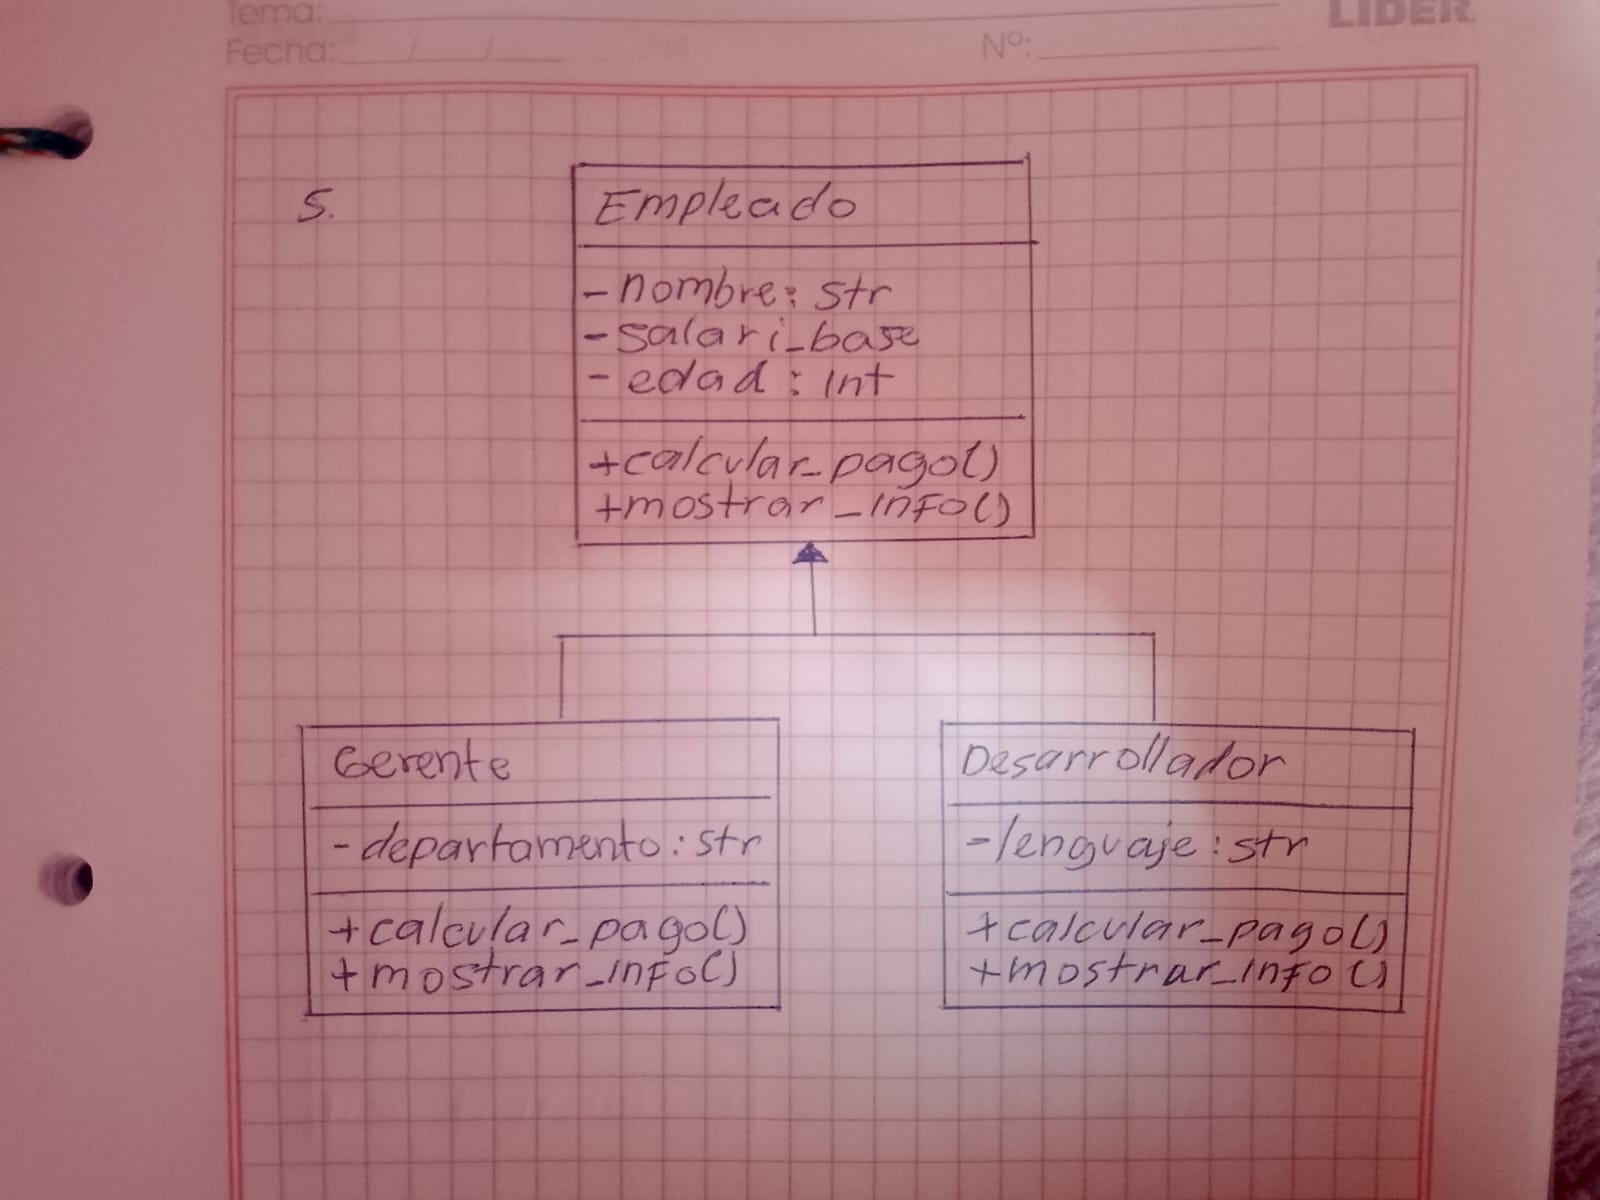 Tema:
LIDER
Fecha: / /
Nº:
5.
Empleado
- nombre: str
- salari_base
- edad : int
+calcular_pago()
+mostrar_info()
Gerente
- departamento: str
+calcular_pago()
+mostrar_info()
Desarrollador
- lenguaje: str
+calcular_pago()
+mostrar_info()